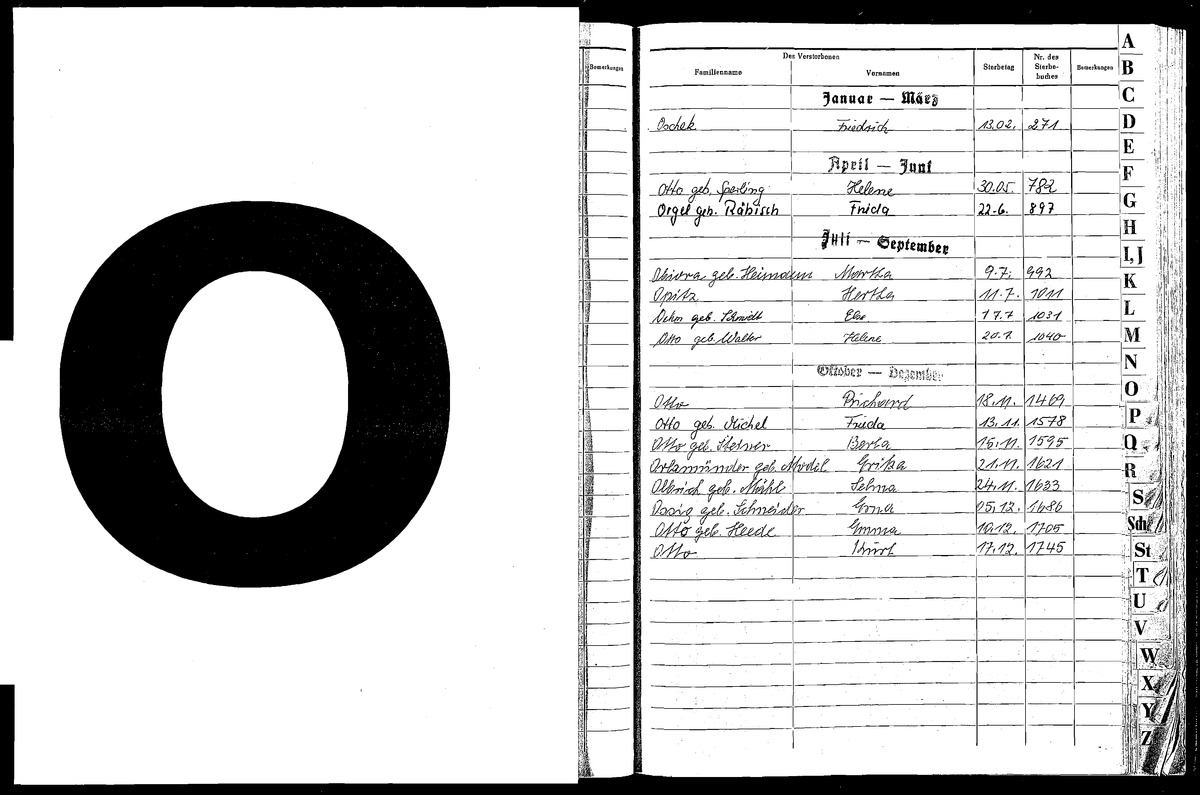 O
Bemerkungen
Des Verstorbenen
Familienname Vornamen Sterbetag Nr. des Sterbebuches Bemerkungen
Januar — März
Oschek Friedrich 13.02. 271
April — Juni
Otto geb. Sperling Helene 30.05. 782
Orgel geb. Räbisch Frida 22.6. 897
Juli — September
geb. Heimdum Martha 9.7. 992
Opitz Hertha 11.7. 1011
geb. Schmidt Else 17.7 1031
Otto geb. Walter Helene 20.7. 1040
Oktober — Dezember
Otto Richard 18.11. 1469
Otto geb. Michel Frieda 13.11. 1578
Otto geb. Steiner Berta 15.11. 1595
Orlamünder geb. Model Erika 21.11. 1621
Olbrich geb. Mähl Selma 24.11. 1633
Ossig geb. Schneider Erna 05.12. 1686
Otto geb. Heede Emma 10.12. 1705
Otto Kurt 17.12. 1745
A
B
C
D
E
F
G
H
I, J
K
L
M
N
O
P
Q
R
S
Sch
St
T
U
V
W
X
Y
Z